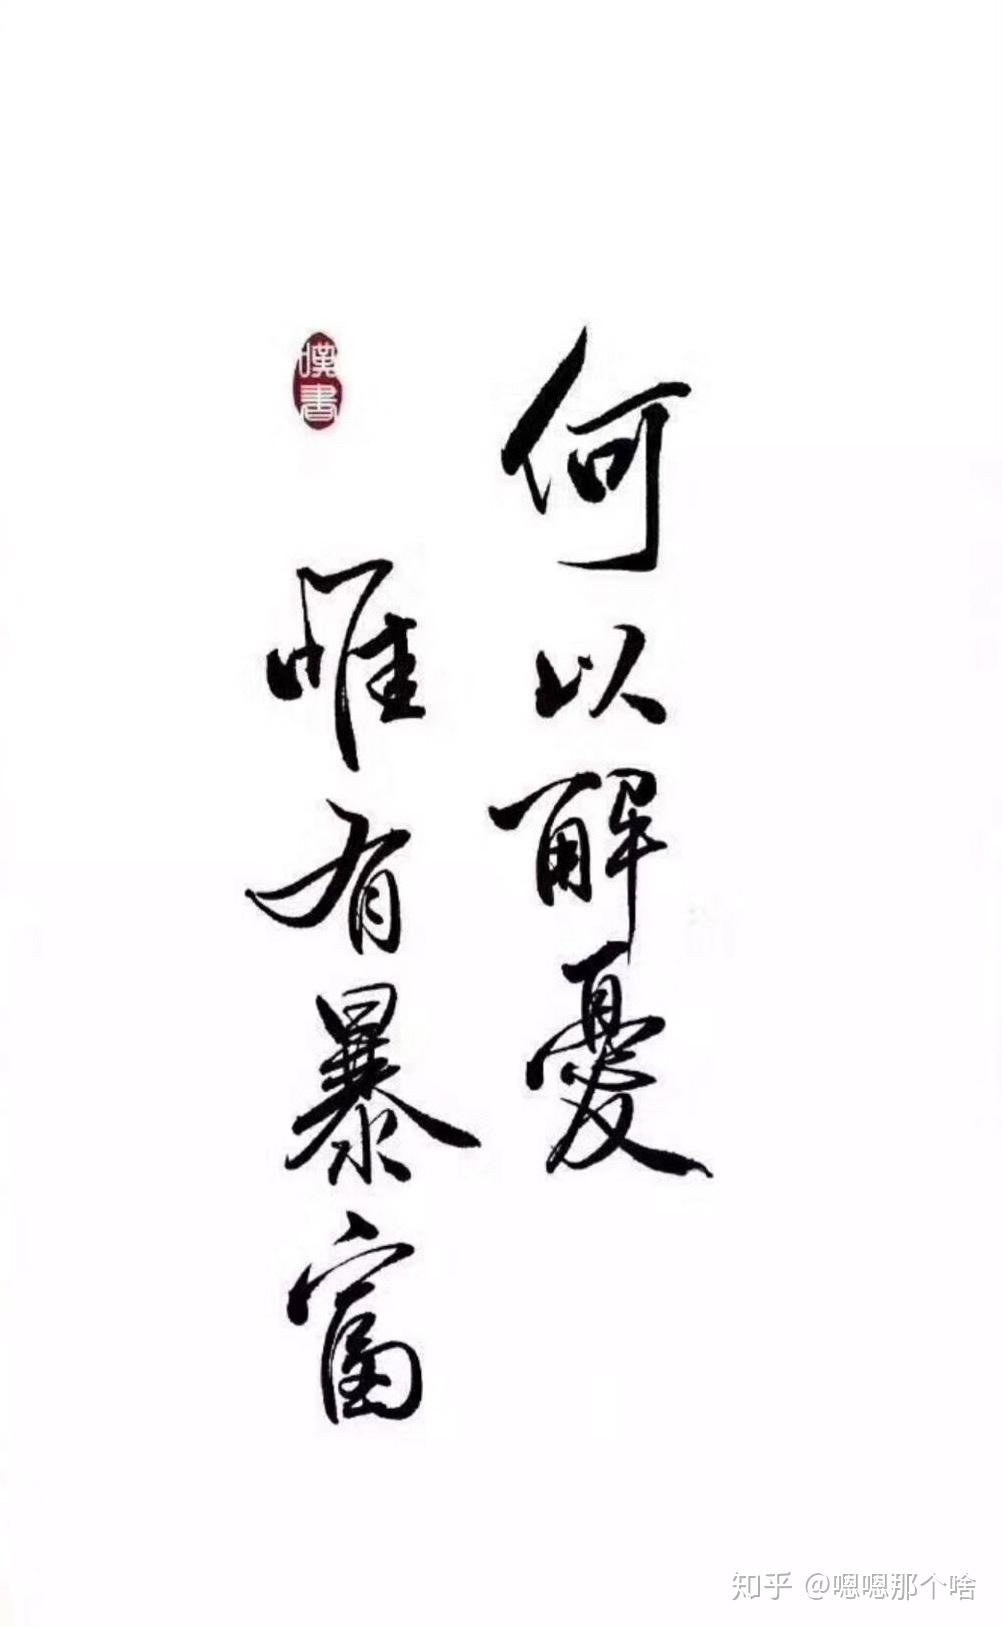 何以解憂
惟有暴富
嘆書
知乎 @嗯嗯那个啥